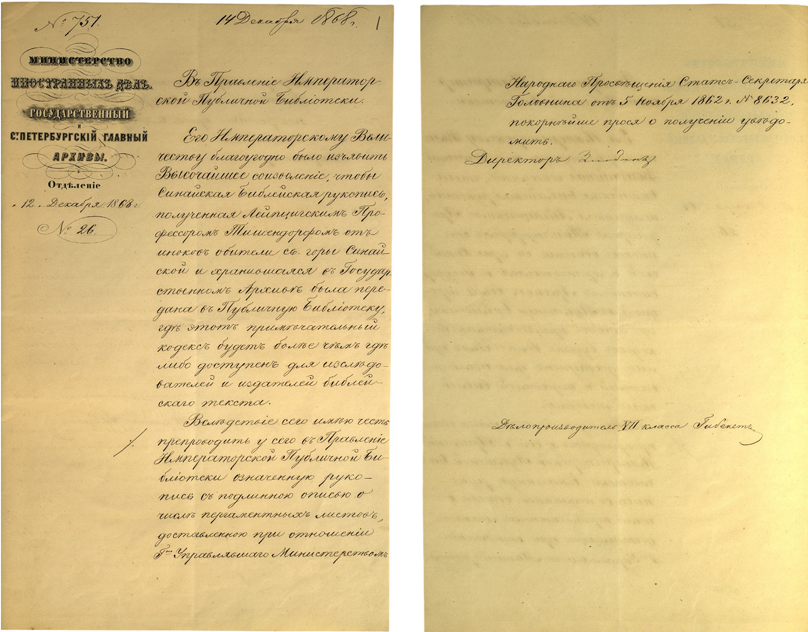 № 751.
14 Декабря 1868 г.
1
МИНИСТЕРСТВО
ИНОСТРАННЫХЪ ДѢЛЪ.
ГОСУДАРСТВЕННЫЙ
и
С.ПЕТЕРБУРГСКІЙ ГЛАВНЫЙ
АРХИВЫ.
Отдѣленіе
12. Декабря 1868 г.
№ 26
Въ Правленіе Император-
ской Публичной Библіотеки.
Его Императорскому Вели-
честву благоугодно было изъявить
Высочайшее соизволеніе, чтобы
Синайская Библейская рукопись,
полученная Лейпцигскимъ Про-
фессоромъ Тишендорфомъ отъ
иноковъ обители св. горы Синай-
ской и хранившаяся въ Государ-
ственномъ Архивѣ была пере-
дана въ Публичную Библіотеку,
гдѣ этотъ примѣчательный
кодексъ будетъ болѣе чѣмъ гдѣ
либо доступенъ для изслѣдо-
вателей и издателей библей-
скаго текста.
Вслѣдствіе сего имѣю честь
препроводить у сего въ Правленіе
Императорской Публичной Би-
бліотеки означенную руко-
пись съ подлинною описью о
числѣ пергаментныхъ листовъ,
доставленною при отношеніи
Гна Управлявшаго Министерствомъ
Народнаго Просвѣщенія Статсъ-Секретаря
Головнина отъ 5 Ноября 1862 г. № 8632,
покорнѣйше прося о полученіи увѣдо-
мить.
Директоръ
Дѣлопроизводитель VII класса